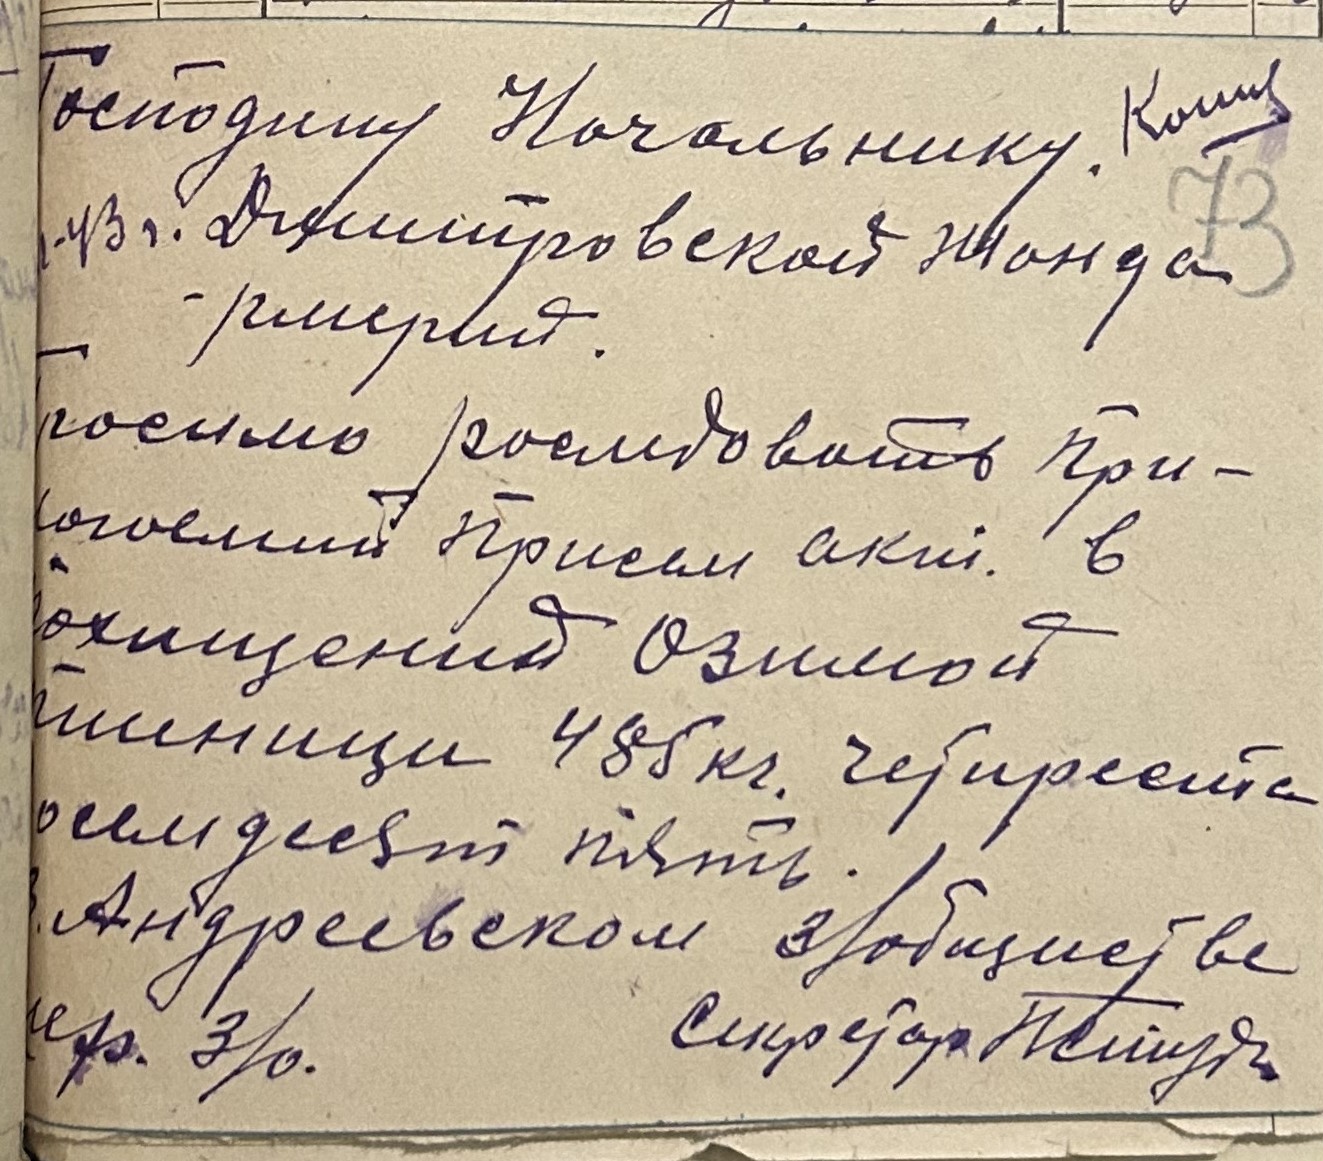 Господину Начальнику. Копия
73
-43 г. Дмитровской Жонда
-рмерий.
росимо роследовать при-
погоемий присем акт. в
похищений Озимой
пшеници 485 кг. четиреста
осемдесят пять.
В. Андреевском з/обществе
з/о. Секретар